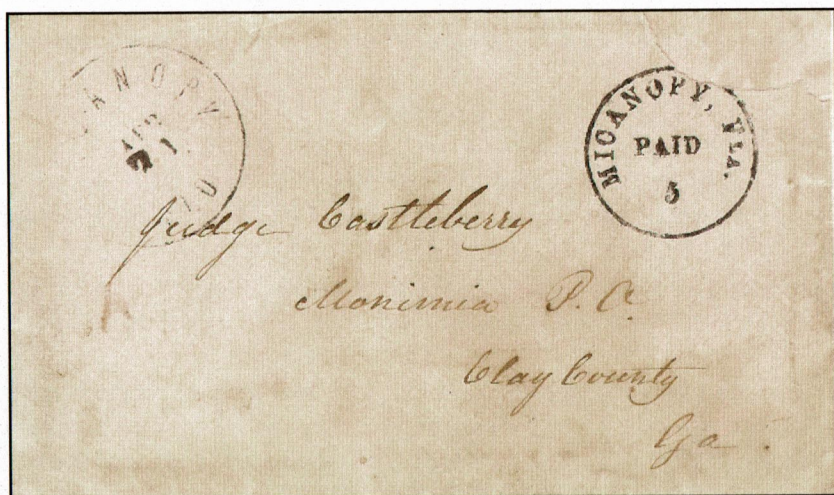 ANOPY
APR
21
MICANOPY, Fla.
PAID
5
Judge Castleberry
Monimia P. O.
Clay County
Ga